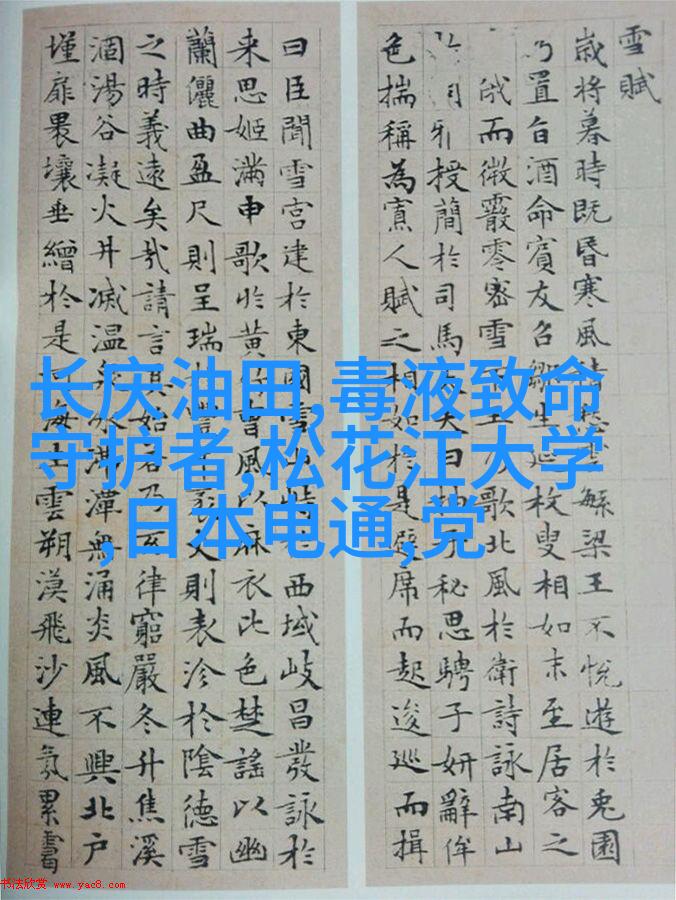 雪賦
歲將暮時既昏寒風繁梁王不悅遊於兎園
乃置旨酒命賓友召鄒生延枚叟相如末至居客之
俄而微霰零密雪王歌北風於衛詩詠南山
授簡於司馬大曰子秘思騁子妍辭侔
色揣稱為寡人賦之相如於是避席而起逡巡而揖
曰臣聞雪宮建於東國雪山峙西域岐昌發詠於
来思姬滿申歌於黃風以麻衣比色楚謠以幽
蘭儷曲盈尺則呈瑞丈則表沴於陰德雪
之時義遠矣哉請言其始若乃玄律窮嚴冬升焦溪
涸湯谷凝火井滅温冰潭無涌炎風不興北户
墐扉壤垂繒於是海生雲朔漠飛沙連氛累靄
长庆油田,毒液致命
守护者,松花江大学
,日本电通,党
书法欣赏 www.yac8.com